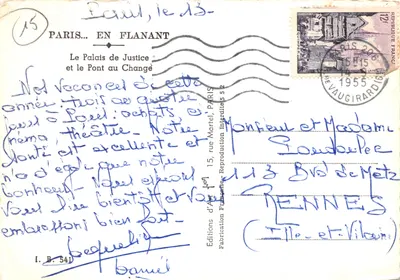 15
Paris, le 13-
PARIS... EN FLANANT
Le Palais de Justice
et le Pont au Change
Nos vacances de cette
année - trois ou quatre
jours à Paris: achats, ci
néma théâtre. Notre
santé est excellente et
n'a d'égal que notre
bonheur. Vous espérons
vous lire bientôt et vous
embrassons bien fort.
Jacqueline
Daniel
I. B. 341
Editions d'Art 15, rue Martel, PARIS
Fabrication Française Reproduction interdite
12F
PARIS
1955
R. DE VAUGIRARD
Monsieur et Madame
113 Bvd de Metz
RENNES
(Ille-et-Vilaine)